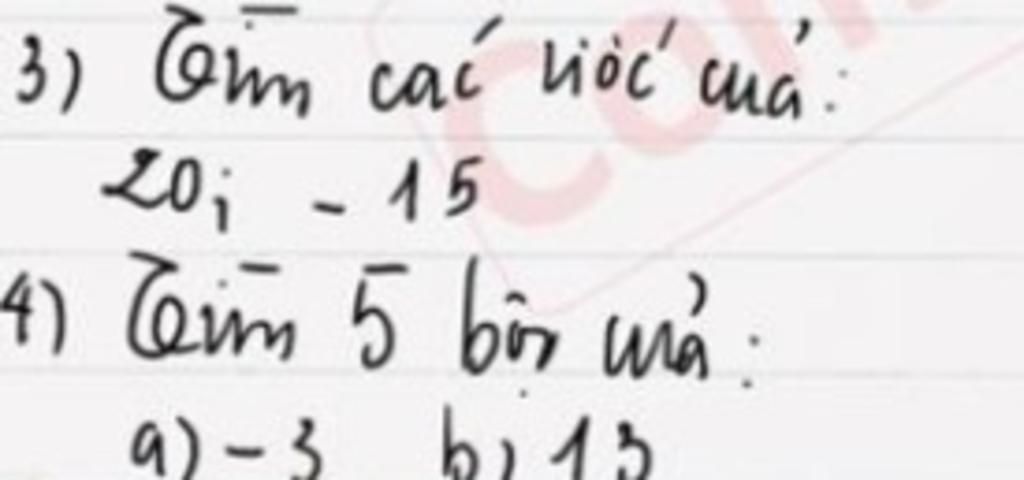 3) Tìm các ước của:
20; -15
4) Tìm 5 bội của:
a) -3 b) 13